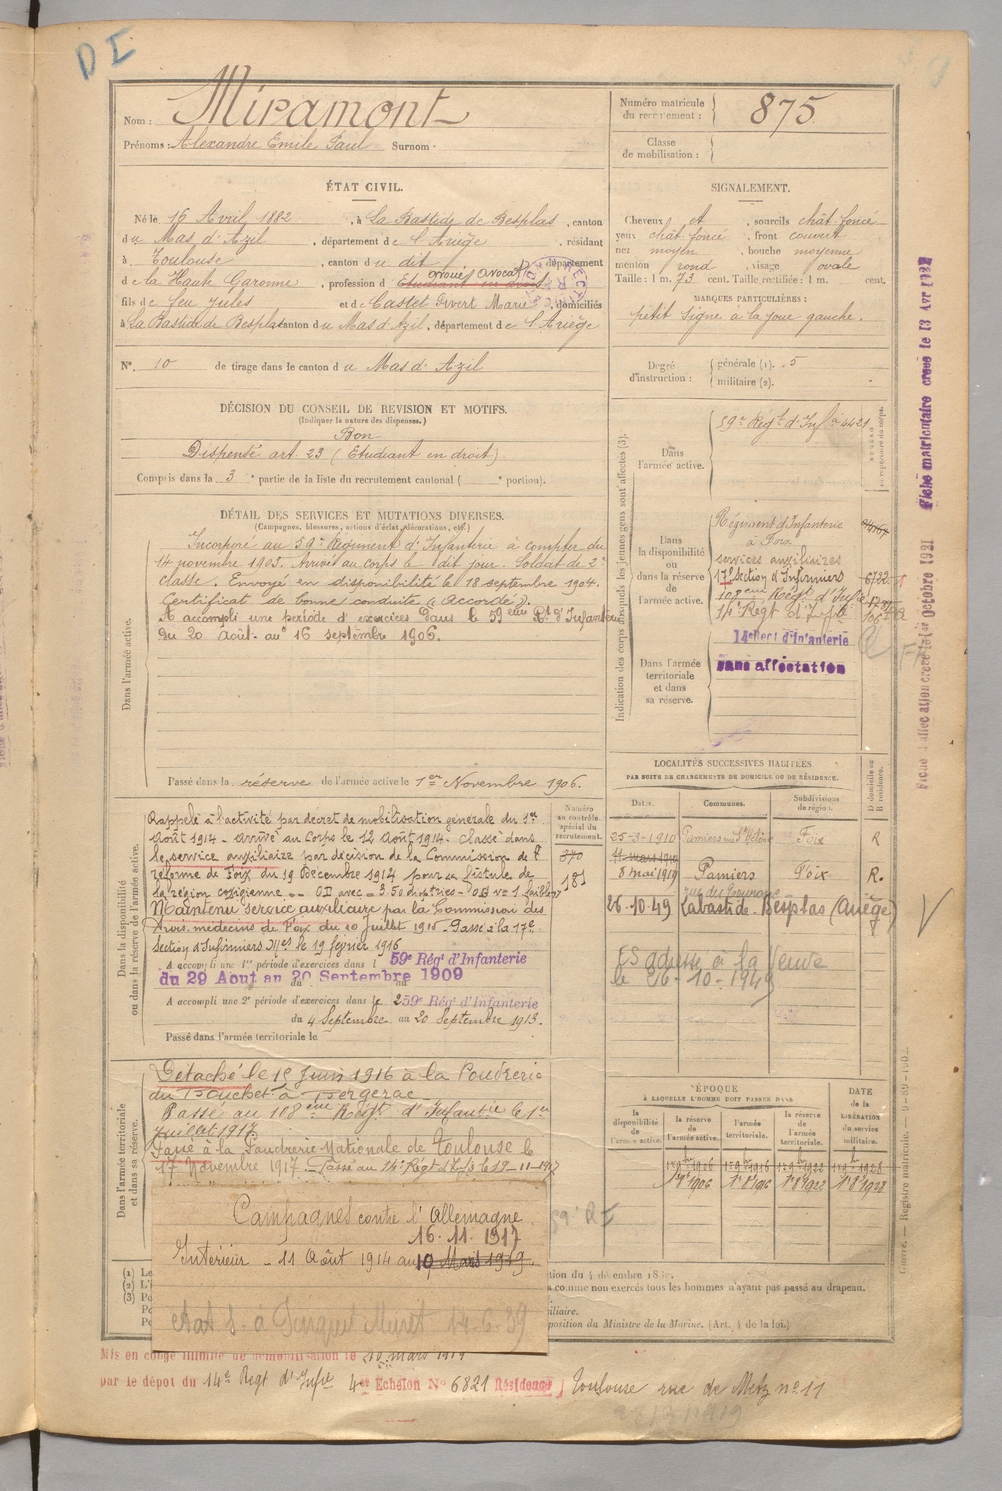 D I
Nom : Miramont
Prénoms : Alexandre Emile Paul Surnom :
Numéro matricule du recrutement : 875
Classe de mobilisation :
ÉTAT CIVIL.
Né le 16 Avril 1882, à La Bastide de Besplas, canton
du Mas d'Azil, département de l'Ariège, résidant
à Toulouse, canton du dit, département
de la Haute Garonne, profession d'Etudiant en droit avoué, avocat
fils de feu Jules et de Castet Divert Marie, domiciliés
à La Bastide de Besplas canton du Mas d'Azil, département de l'Ariège
N°. 10 de tirage dans le canton du Mas d'Azil
SIGNALEMENT.
Cheveux et, sourcils chât. foncé
yeux chât. foncé, front couvert
nez moyen, bouche moyenne
menton rond, visage ovale
Taille : 1 m. 73 cent. Taille rectifiée : 1 m. cent.
MARQUES PARTICULIÈRES :
petit signe à la joue gauche.
Degré d'instruction : générale (1). 5
militaire (2).
DÉCISION DU CONSEIL DE REVISION ET MOTIFS.
(Indiquer la nature des dispenses.)
Bon
Dispensé art. 23 (Etudiant en droit)
Compris dans la 3e partie de la liste du recrutement cantonal ( e portion).
DÉTAIL DES SERVICES ET MUTATIONS DIVERSES.
(Campagnes, blessures, actions d'éclat, décorations, etc.)
Dans l'armée active.
Incorporé au 59e Régiment d'Infanterie à compter du
14 novembre 1903. Arrivé au corps le dit jour. Soldat de 2e
classe. Envoyé en disponibilité le 18 septembre 1904.
Certificat de bonne conduite « Accordé ».
A accompli une période d'exercices dans le 59eme Rt d'Infanterie
du 20 août au 16 septembre 1906.
Passé dans la réserve de l'armée active le 1er Novembre 1906.
Indication des corps auxquels les jeunes gens sont affectés (3).
Dans l'armée active.
59e Régt d'Inf. 4421
Dans la disponibilité ou dans la réserve de l'armée active.
Régiment d'Infanterie
à Foix
services auxiliaires
17e Section d'Infirmiers 6722
108eme Régt d'Infie
14e Régt d'Infie
14e Regt d'Infanterie
Dans l'armée territoriale et dans sa réserve.
sans affectation
Fiche matriculaire créée le 13 Avr
Fiche d'affectation créée le 1er Octobre 1921
Dans la disponibilité ou dans la réserve de l'armée active.
Numéro au contrôle spécial du recrutement.
370
181
Rappelé à l'activité par décret de mobilisation générale du 1er
Août 1914. Arrivé au Corps le 12 Août 1914. Classé dans
le service auxiliaire par décision de la Commission de
réforme de Foix du 19 Décembre 1914 pour
Maintenu service auxiliaire par la Commission des
trois médecins de Foix du 10 juillet 1915. Passé à la 17e
Section d'Infirmiers Mres le 19 février 1916
A accompli une 1re période d'exercices dans l 59e Régt d'Infanterie
du 29 Aout au 20 Septembre 1909
A accompli une 2e période d'exercices dans le 59e Régt d'Infanterie
du 4 Septembre au 20 Septembre 1913.
Passé dans l'armée territoriale le
LOCALITÉS SUCCESSIVES HABITÉES
PAR SUITE DE CHANGEMENTS DE DOMICILE OU DE RÉSIDENCE.
Dates. Communes. Subdivisions de région. D domicile ou R résidence.
25-3-1910 Pamiers Foix R
8 mai 1914 Pamiers Foix R.
26.10.49 Labastide. Besplas (Ariège)
ES adresse à la Veuve
le 26-10-1949
Dans l'armée territoriale et dans sa réserve.
Détaché le 15 Juin 1916 à la Poudrerie
du Bouchet à Bergerac
Passé au 108eme Régt d'Infantie le 1er
juillet 1917
Passé à la Poudrerie Nationale de Toulouse le
17 Novembre 1917. Passé au 14e Régt d'Inf. le 19-11-1917
Campagnes contre l'Allemagne
16.11.1917
Intérieur - 11 Août 1914 au 10 Mars 1919.
14-6-39
59e RI
ÉPOQUE
À LAQUELLE L'HOMME DOIT PASSER DANS
la disponibilité de l'armée active. la réserve de l'armée active. l'armée territoriale. la réserve de l'armée territoriale. DATE de la LIBÉRATION du service militaire.
1er 9bre 1906 1er 9bre 1916 1er 9bre 1922 1er 9bre 1928
1er 8bre 1906 1er 8bre 1916 1er 8bre 1922 1er 8bre 1928
comme non exercés tous les hommes n'ayant pas passé au drapeau.
position du Ministre de la Marine. (Art. 4 de la loi.)
Mis en congé illimité de démobilisation le 10 mars 1919
par le dépôt du 14e Regt d'Infie 4e Echelon N° 6821 Résidence Toulouse rue de Metz n° 11